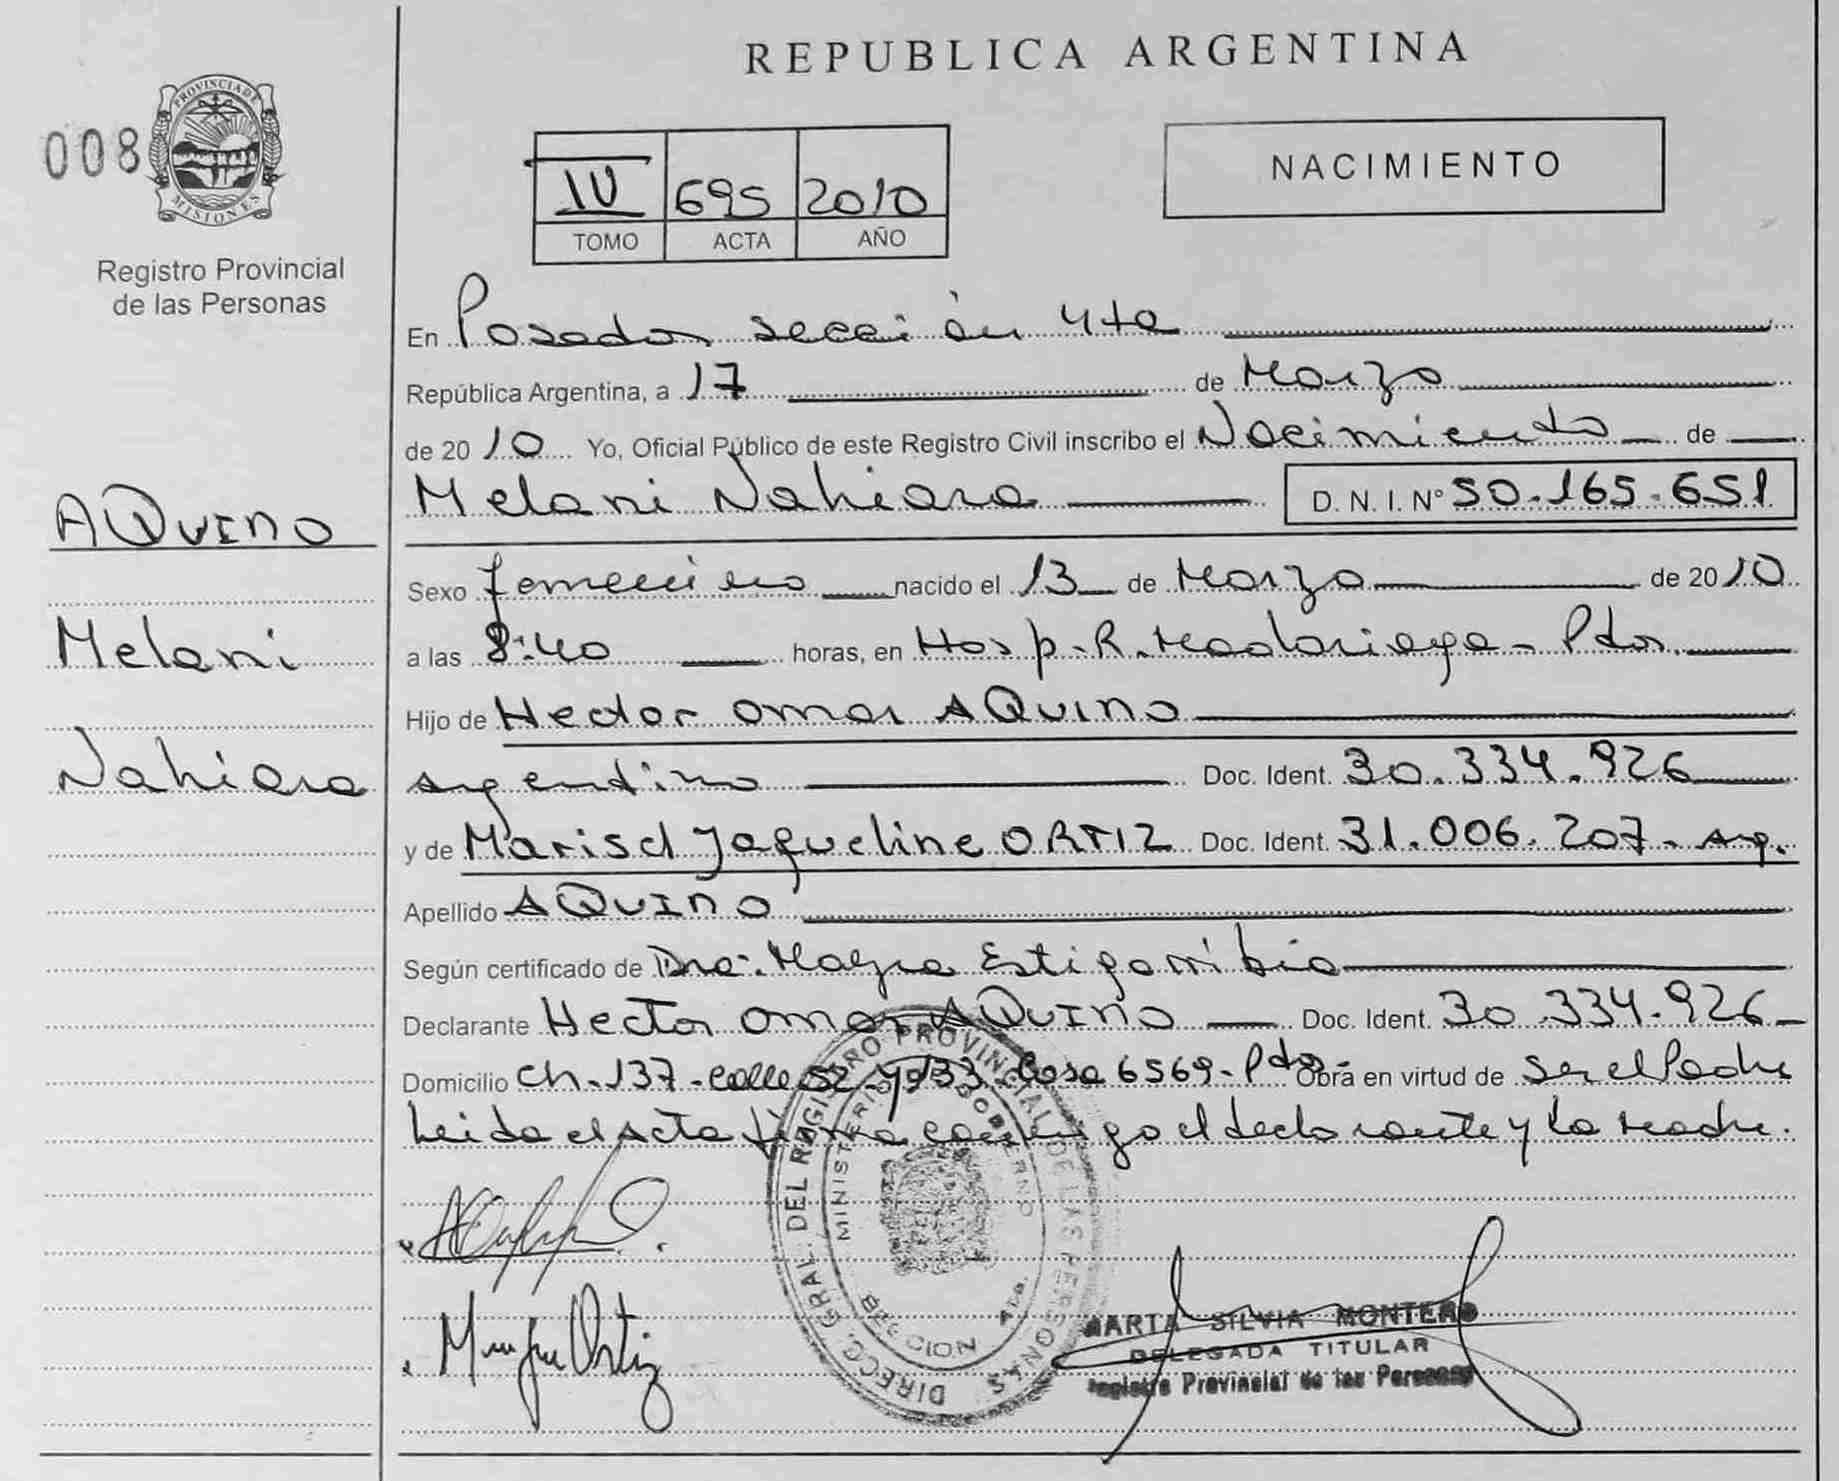 REPUBLICA ARGENTINA
008
PROVINCIA DE MISIONES
Registro Provincial
de las Personas
IV 695 2010
TOMO ACTA AÑO
NACIMIENTO
En Posadas sección 4ta
República Argentina, a 17 de Marzo
de 2010 Yo, Oficial Público de este Registro Civil inscribo el Nacimiento de
Melani Nahiara D. N. I. Nº 50.165.651
AQUINO
Melani
Nahiara
Sexo femenino nacido el 13 de Marzo de 2010
a las 8:40 horas, en Hosp. R. Madariaga - Pdas.
Hijo de Hector Omar AQUINO
argentino Doc. Ident. 30.334.926
y de Marisel Jaqueline ORTIZ Doc. Ident. 31.006.207 - Arg.
Apellido AQUINO
Según certificado de Dra. Mayra Estigarribia
Declarante Hector Omar AQUINO Doc. Ident. 30.334.926
Domicilio Ch. 137 - calle 52 y 133 - Casa 6569 - Pdas - Obra en virtud de ser el Padre
Leida el Acta firma conmigo el declarante y la madre.
DIRECC. GRAL. DEL REGISTRO PROVINCIAL DE LAS PERSONAS
MINISTERIO DE GOBIERNO
SECCION 4ta.
Ortiz
MARTA SILVIA MONTERO
DELEGADA TITULAR
Registro Provincial de las Personas